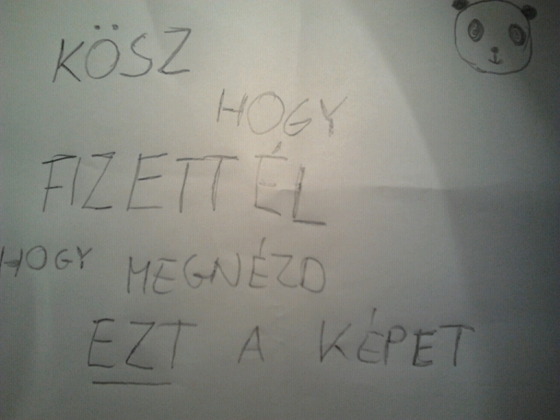 KÖSZ
HOGY
FIZETTÉL
HOGY MEGNÉZD
EZT A KÉPET